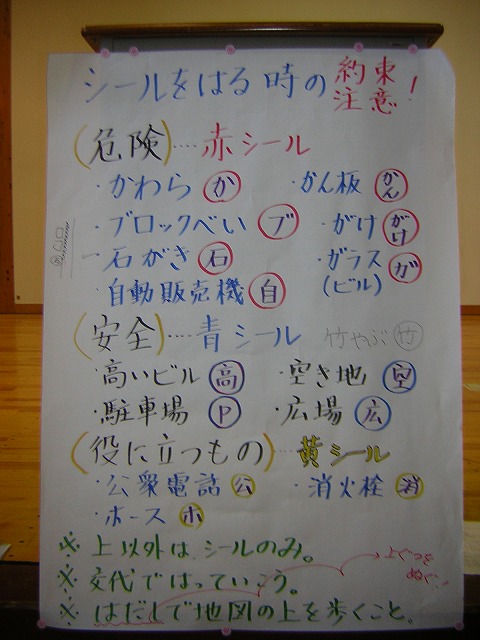 シールをはる時の 約束 注意!
(危険)‥‥赤シール
・かわら か ・かん板 かん
・ブロックべい ブ ・がけ がけ
・石がき 石 ・ガラス(ビル) ガ
・自動販売機 自
(安全)‥‥青シール 竹やぶ 竹
・高いビル 高 ・空き地 空
・駐車場 P ・広場 広
(役に立つもの)‥‥黄シール
・公衆電話 公 ・消火栓 消
・ホース ホ
※ 上以外は、シールのみ。
※ 交代ではっていこう。
※ はだしで地図の上を歩くこと。
→上ぐつをぬぐ!